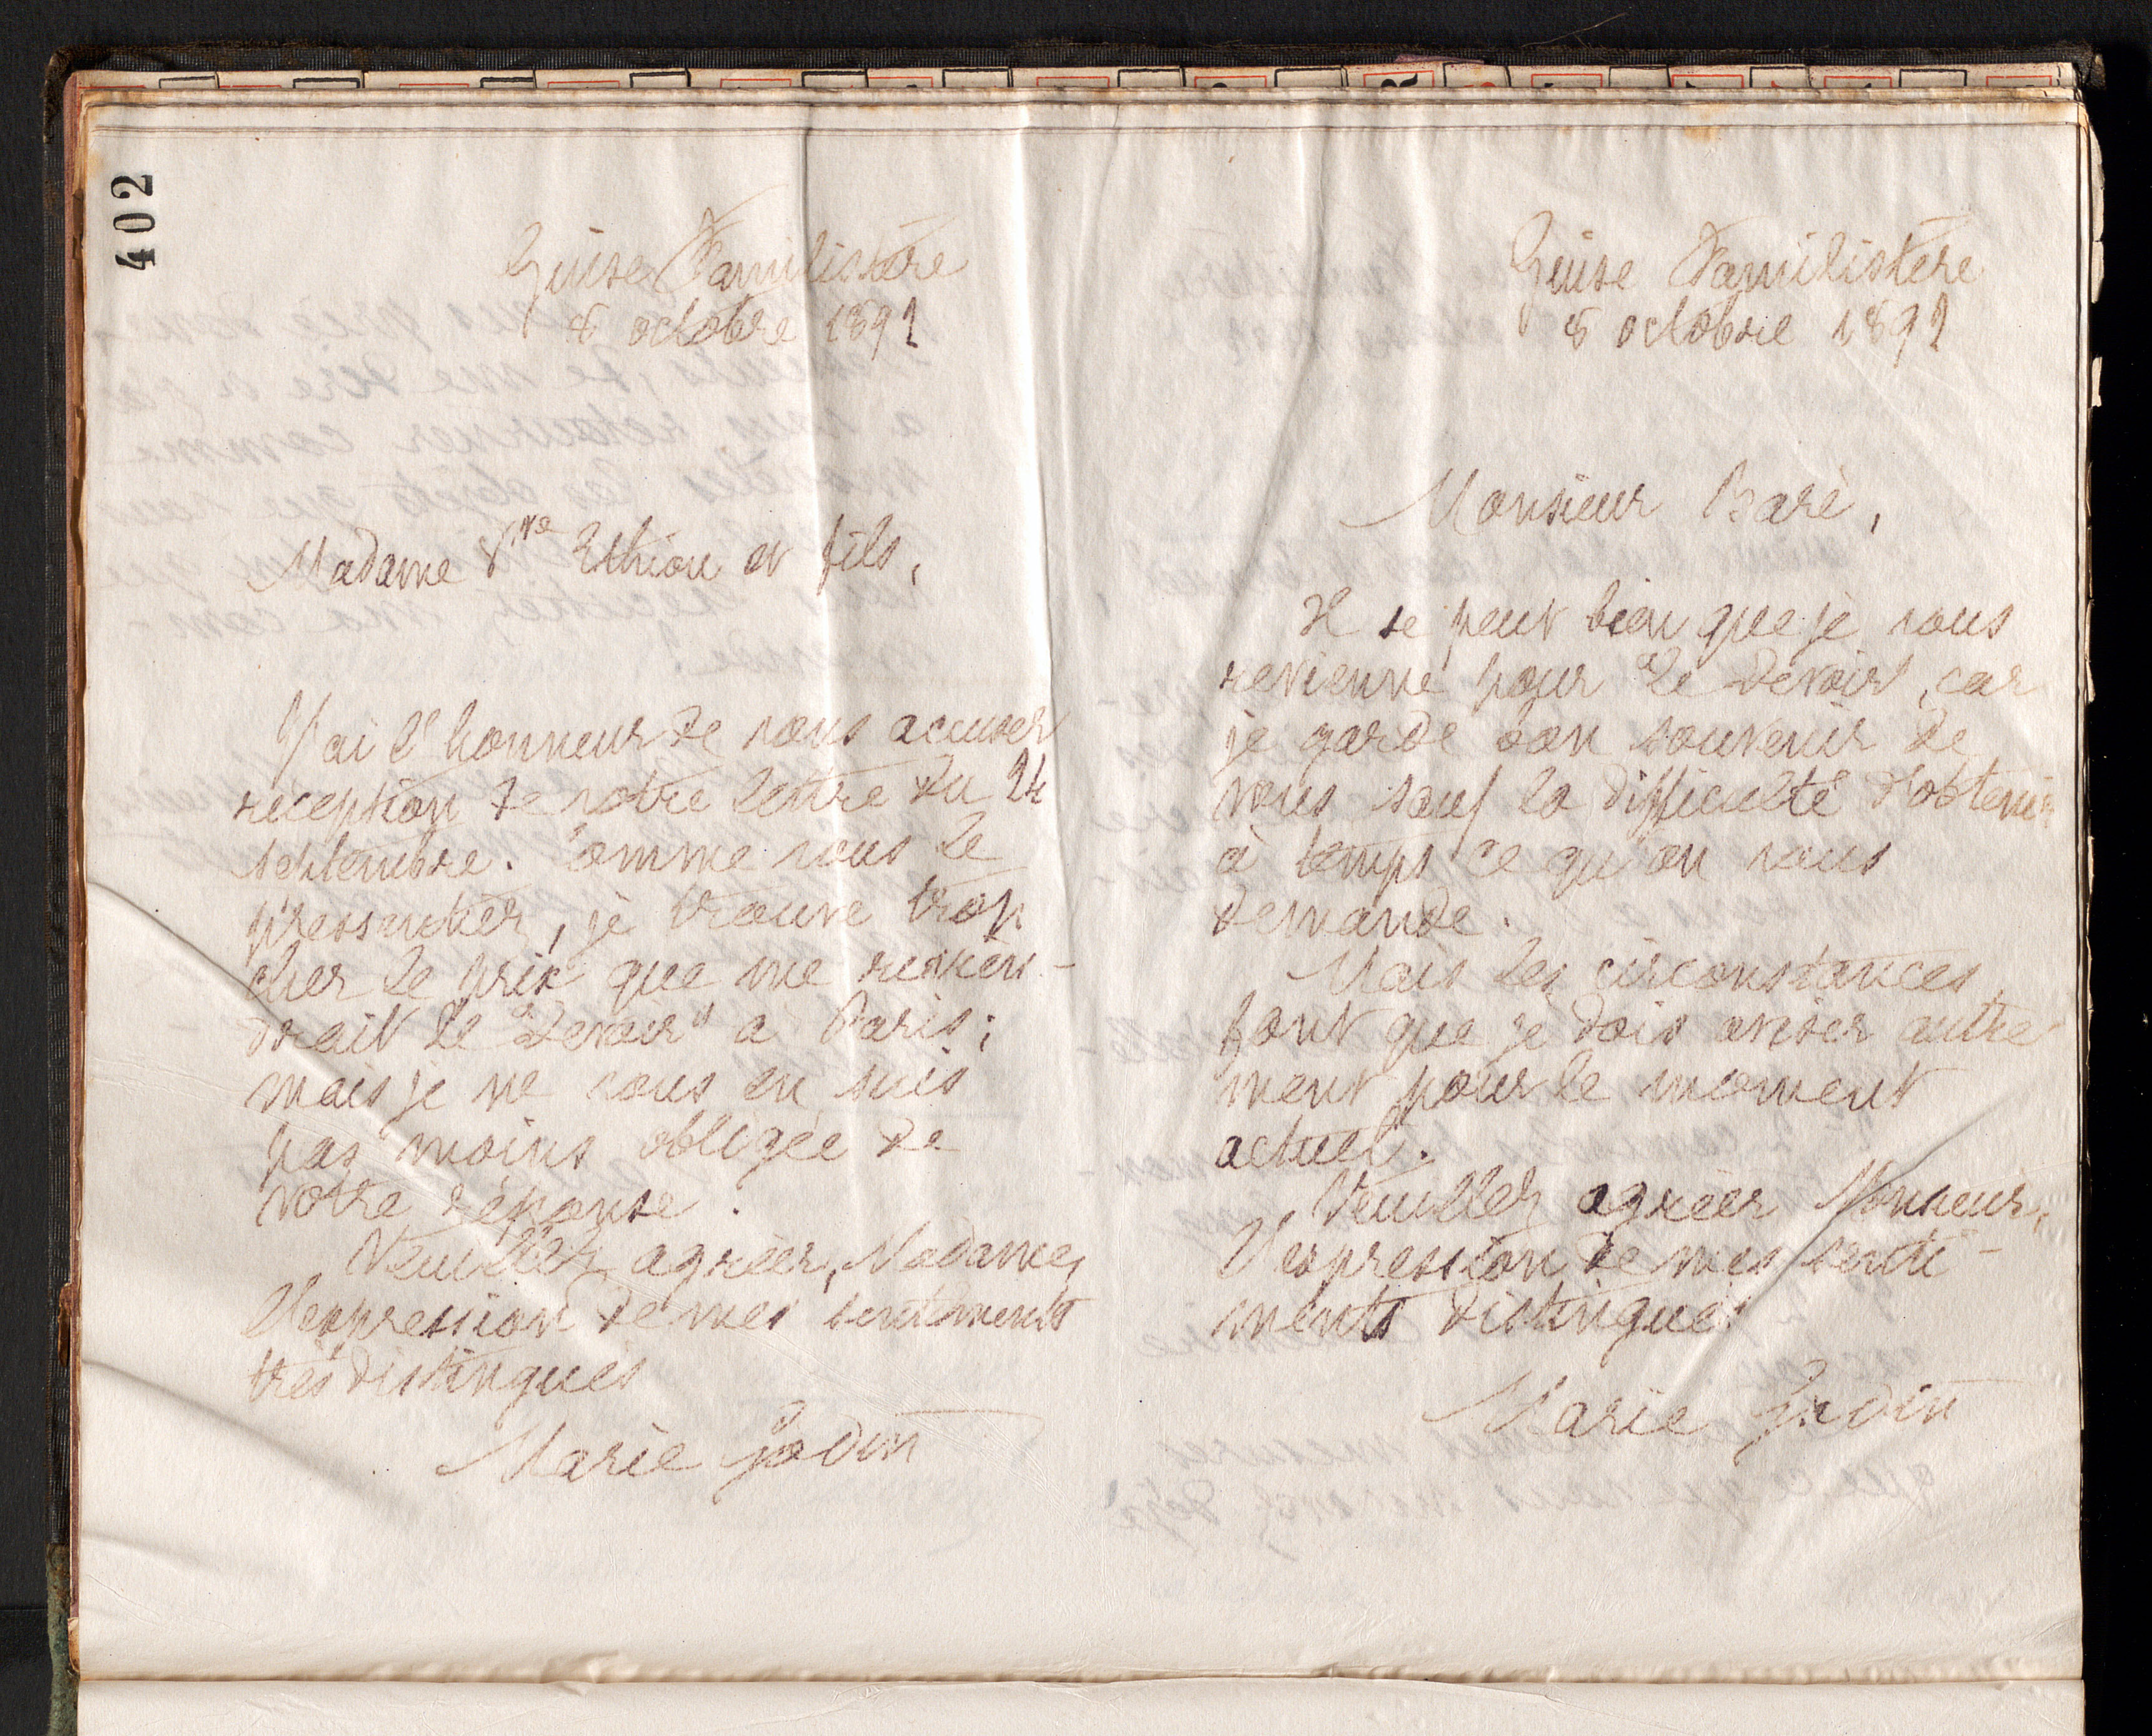 402
Guise Familistère
8 octobre 1892
Madame Vve Ethiou et fils,
J'ai l'honneur de vous accuser
réception de votre lettre du 24
septembre. Comme vous le
pressentiez, je trouve trop
cher le prix que me revien-
drait le "Devoir" à Paris;
mais je ne vous en suis
pas moins obligée de
votre réponse.
Veuillez agréer, Madame,
l'expression de mes sentiments
très distingués
Marie Godin
Guise Familistère
8 octobre 1892
Monsieur Baré,
Il se peut bien que je vous
revienne pour "le Devoir", car
je garde bon souvenir de
vous sauf la difficulté d'obtenir
à temps ce qu'on vous
demande.
Mais les circonstances
font que je dois aviser autre
ment pour le moment
actuel.
Veuillez agréer Monsieur,
l'expression de mes senti-
ments distingués
Marie Godin